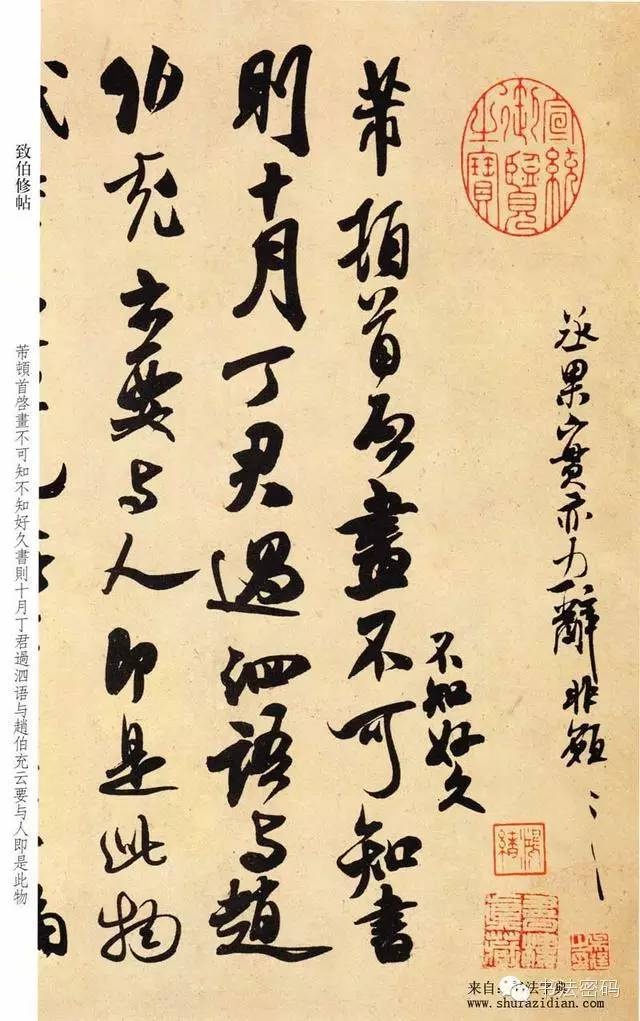 宣統御覽之寶
果實亦力辭非願〻
芾頓首啓畫不可知書
不知好久
則十月丁君過泗語与趙
伯充云要与人即是此物
致伯修帖
芾頓首啓畫不可知不知好久書則十月丁君過泗语与趙伯充云要与人即是此物
来自:书法字典
www.shurazidian.com
书法密码